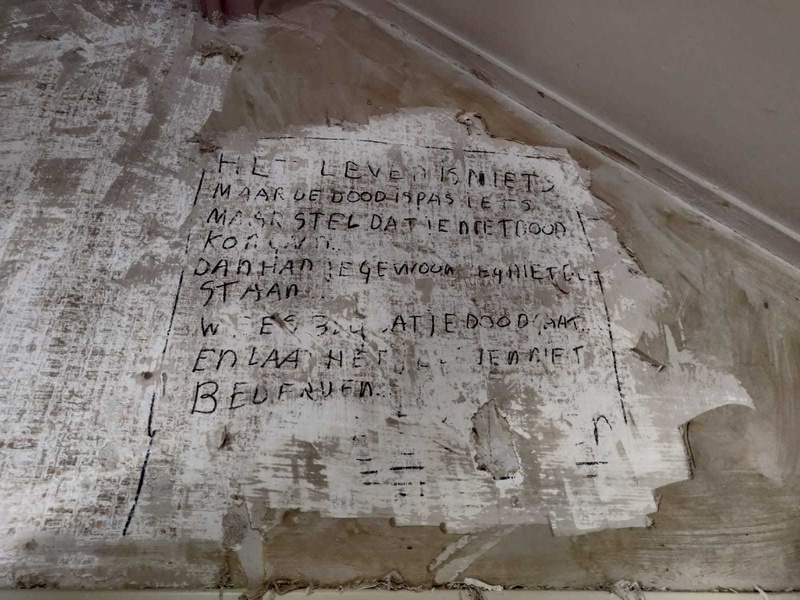 HET LEVEN IS NIETS
MAAR DE DOOD IS PAS IETS
MAAR STEL DAT JE NIET DOOD
KON
DAN HAD JE GEWOON NIET
STAAN...
WEES BLIJ DAT JE DOOD GAAT...
EN LAAT HET NIET
BEDERVEN...